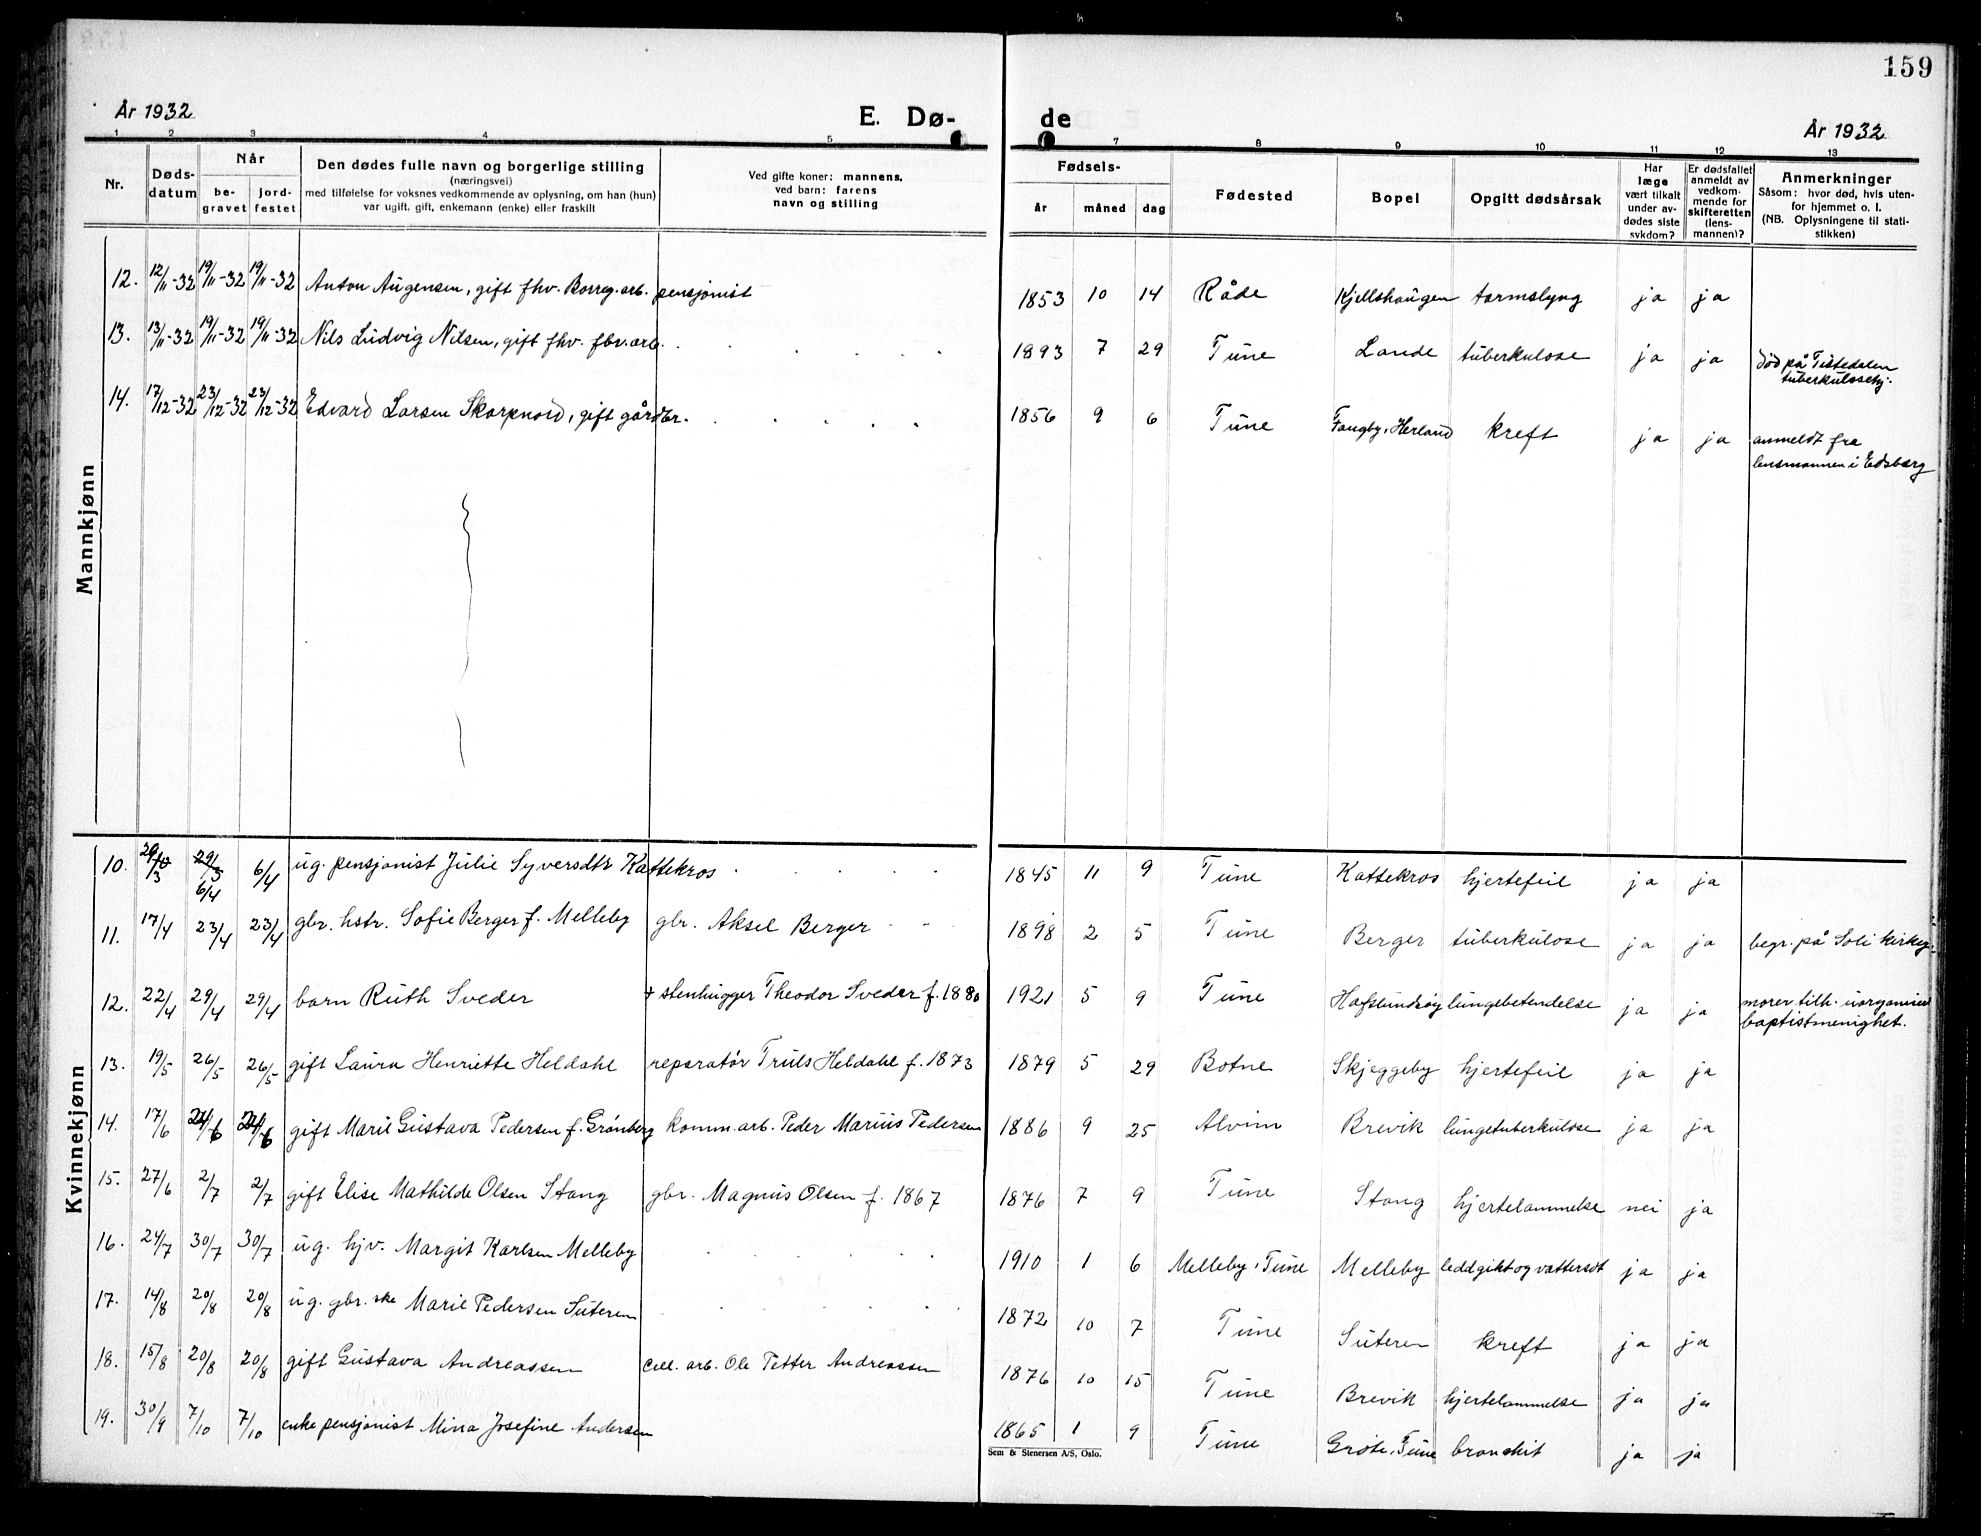 159
År 1932
E. Dø-
de
År 1932
1 2 3 4 5 7 8 9 10 11 12 13
Nr.
Døds-
datum
Når
be-
gravet
jord-
festet
Den dødes fulle navn og borgerlige stilling
(næringsvei)
med tilføielse for voksnes vedkommende av oplysning, om han (hun)
var ugift, gift, enkemann (enke) eller fraskilt
Ved gifte koner: mannens,
ved barn: farens
navn og stilling
Fødsels-
år måned dag
Fødested
Bopel
Opgitt dødsårsak
Har
læge
vært tilkalt
under av-
dødes siste
sykdom?
Er dødsfallet
anmeldt av
vedkom-
mende for
skifteretten
(lens-
mannen)?
Anmerkninger
Såsom: hvor død, hvis uten-
for hjemmet o. l.
(NB. Oplysningene til stati-
stikken)
Mannkjønn
12. 12/11-32 19/11-32 19/11-32 Anton Augensen, gift fhv. Borreg. arb. pensjonist 1853 10 14 Råde Kjellshaugen tarmslyng ja ja
13. 13/11-32 19/11-32 19/11-32 Nils Ludvig Nilsen, gift fhv. fbv. arb. 1893 7 29 Tune Lande tuberkulose ja ja død på Tistedalen
tuberkulosehj.
14. 17/12-32 23/12-32 23/12-32 Edvard Larsen Skarpnord, gift gårdbr. 1856 9 6 Tune Fangby, Herland kreft ja ja anmeldt fra
lensmannen i Eidsberg
Kvinnekjønn
10. 29/3 29/3 6/4 6/4 ug. pensjonist Julie Syversdtr Kattekros 1845 11 9 Tune Kattekros hjertefeil ja ja
11. 17/4 23/4 23/4 gbr. hstr. Sofie Berger f. Melleby gbr. Aksel Berger 1898 2 5 Tune Berger tuberkulose ja ja begr. på Soli kirkeg.
12. 22/4 29/4 29/4 barn Ruth Sveder + stenhugger Theodor Sveder f. 1880 1921 5 9 Tune Hafslundsøy lungebetendelse ja ja moren tilh. uorganisert
baptistmenighet.
13. 19/5 26/5 26/5 gift Laura Henriette Heldahl reparatør Truls Heldahl f. 1873 1879 5 29 Botne Skjeggeby hjertefeil ja ja
14. 17/6 24/6 24/6 gift Marie Gustava Pedersen f. Grønberg komm. arb. Peder Marius Pedersen 1886 9 25 Alvim Brevik lungetuberkulose ja ja
15. 27/6 2/7 2/7 gift Elise Mathilde Olsen Stang gbr. Magnus Olsen f. 1867 1876 7 9 Tune Stang hjertelammelse nei ja
16. 24/7 30/7 30/7 ug. hjv. Margit Karlsen Melleby 1910 1 6 Melleby i Tune Melleby leddgikt og vattersot ja ja
17. 14/8 20/8 20/8 ug. gbr.ske Marie Pedersen Suteren 1872 10 7 Tune Suteren kreft ja ja
18. 15/8 20/8 20/8 gift Gustava Andreassen cell. arb. Ole Petter Andreassen 1876 10 15 Tune Brevik hjertelammelse ja ja
19. 30/9 7/10 7/10 enke pensjonist Mina Josefine Andersen 1865 1 9 Tune Grøte, Tune bronchit ja ja
Sem & Stenersen A/S, Oslo.